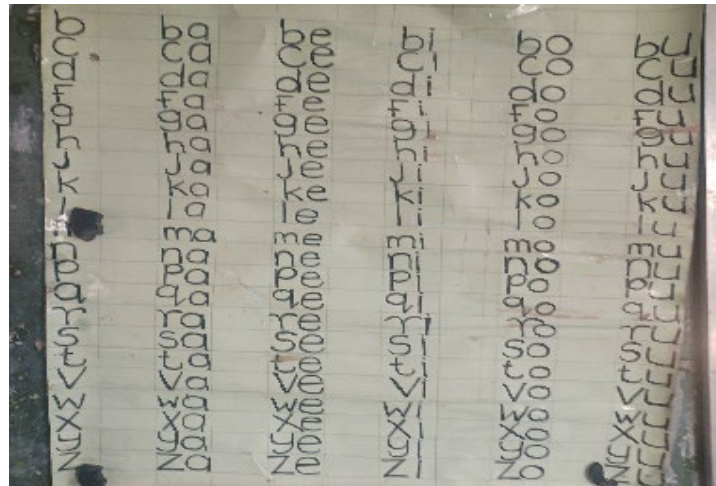 b ba be bi bo bu
c ca ce ci co cu
d da de di do du
f fa fe fi fo fu
g ga ge gi go gu
h ha he hi ho hu
j ja je ji jo ju
k ka ke ki ko ku
l la le li lo lu
ma me mi mo mu
n na ne ni no nu
p pa pe pi po pu
q qa qe qi qo qu
r ra re ri ro ru
s sa se si so su
t ta te ti to tu
v va ve vi vo vu
w wa we wi wo wu
x xa xe xi xo xu
y ya ye yi yo yu
z za ze zi zo zu